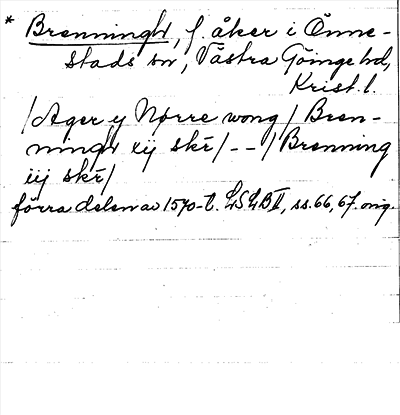 * Brenningh, f. åker i Önne-
stads sn, Västra Göinge hd,
Krist. l.
/Ager y Nørre wong/ Bren-
ningh xij skr̄/ - - / Brenning
iij skr̄/
förra delen av 1540-t. LSLB II, ss. 66, 67. orig.